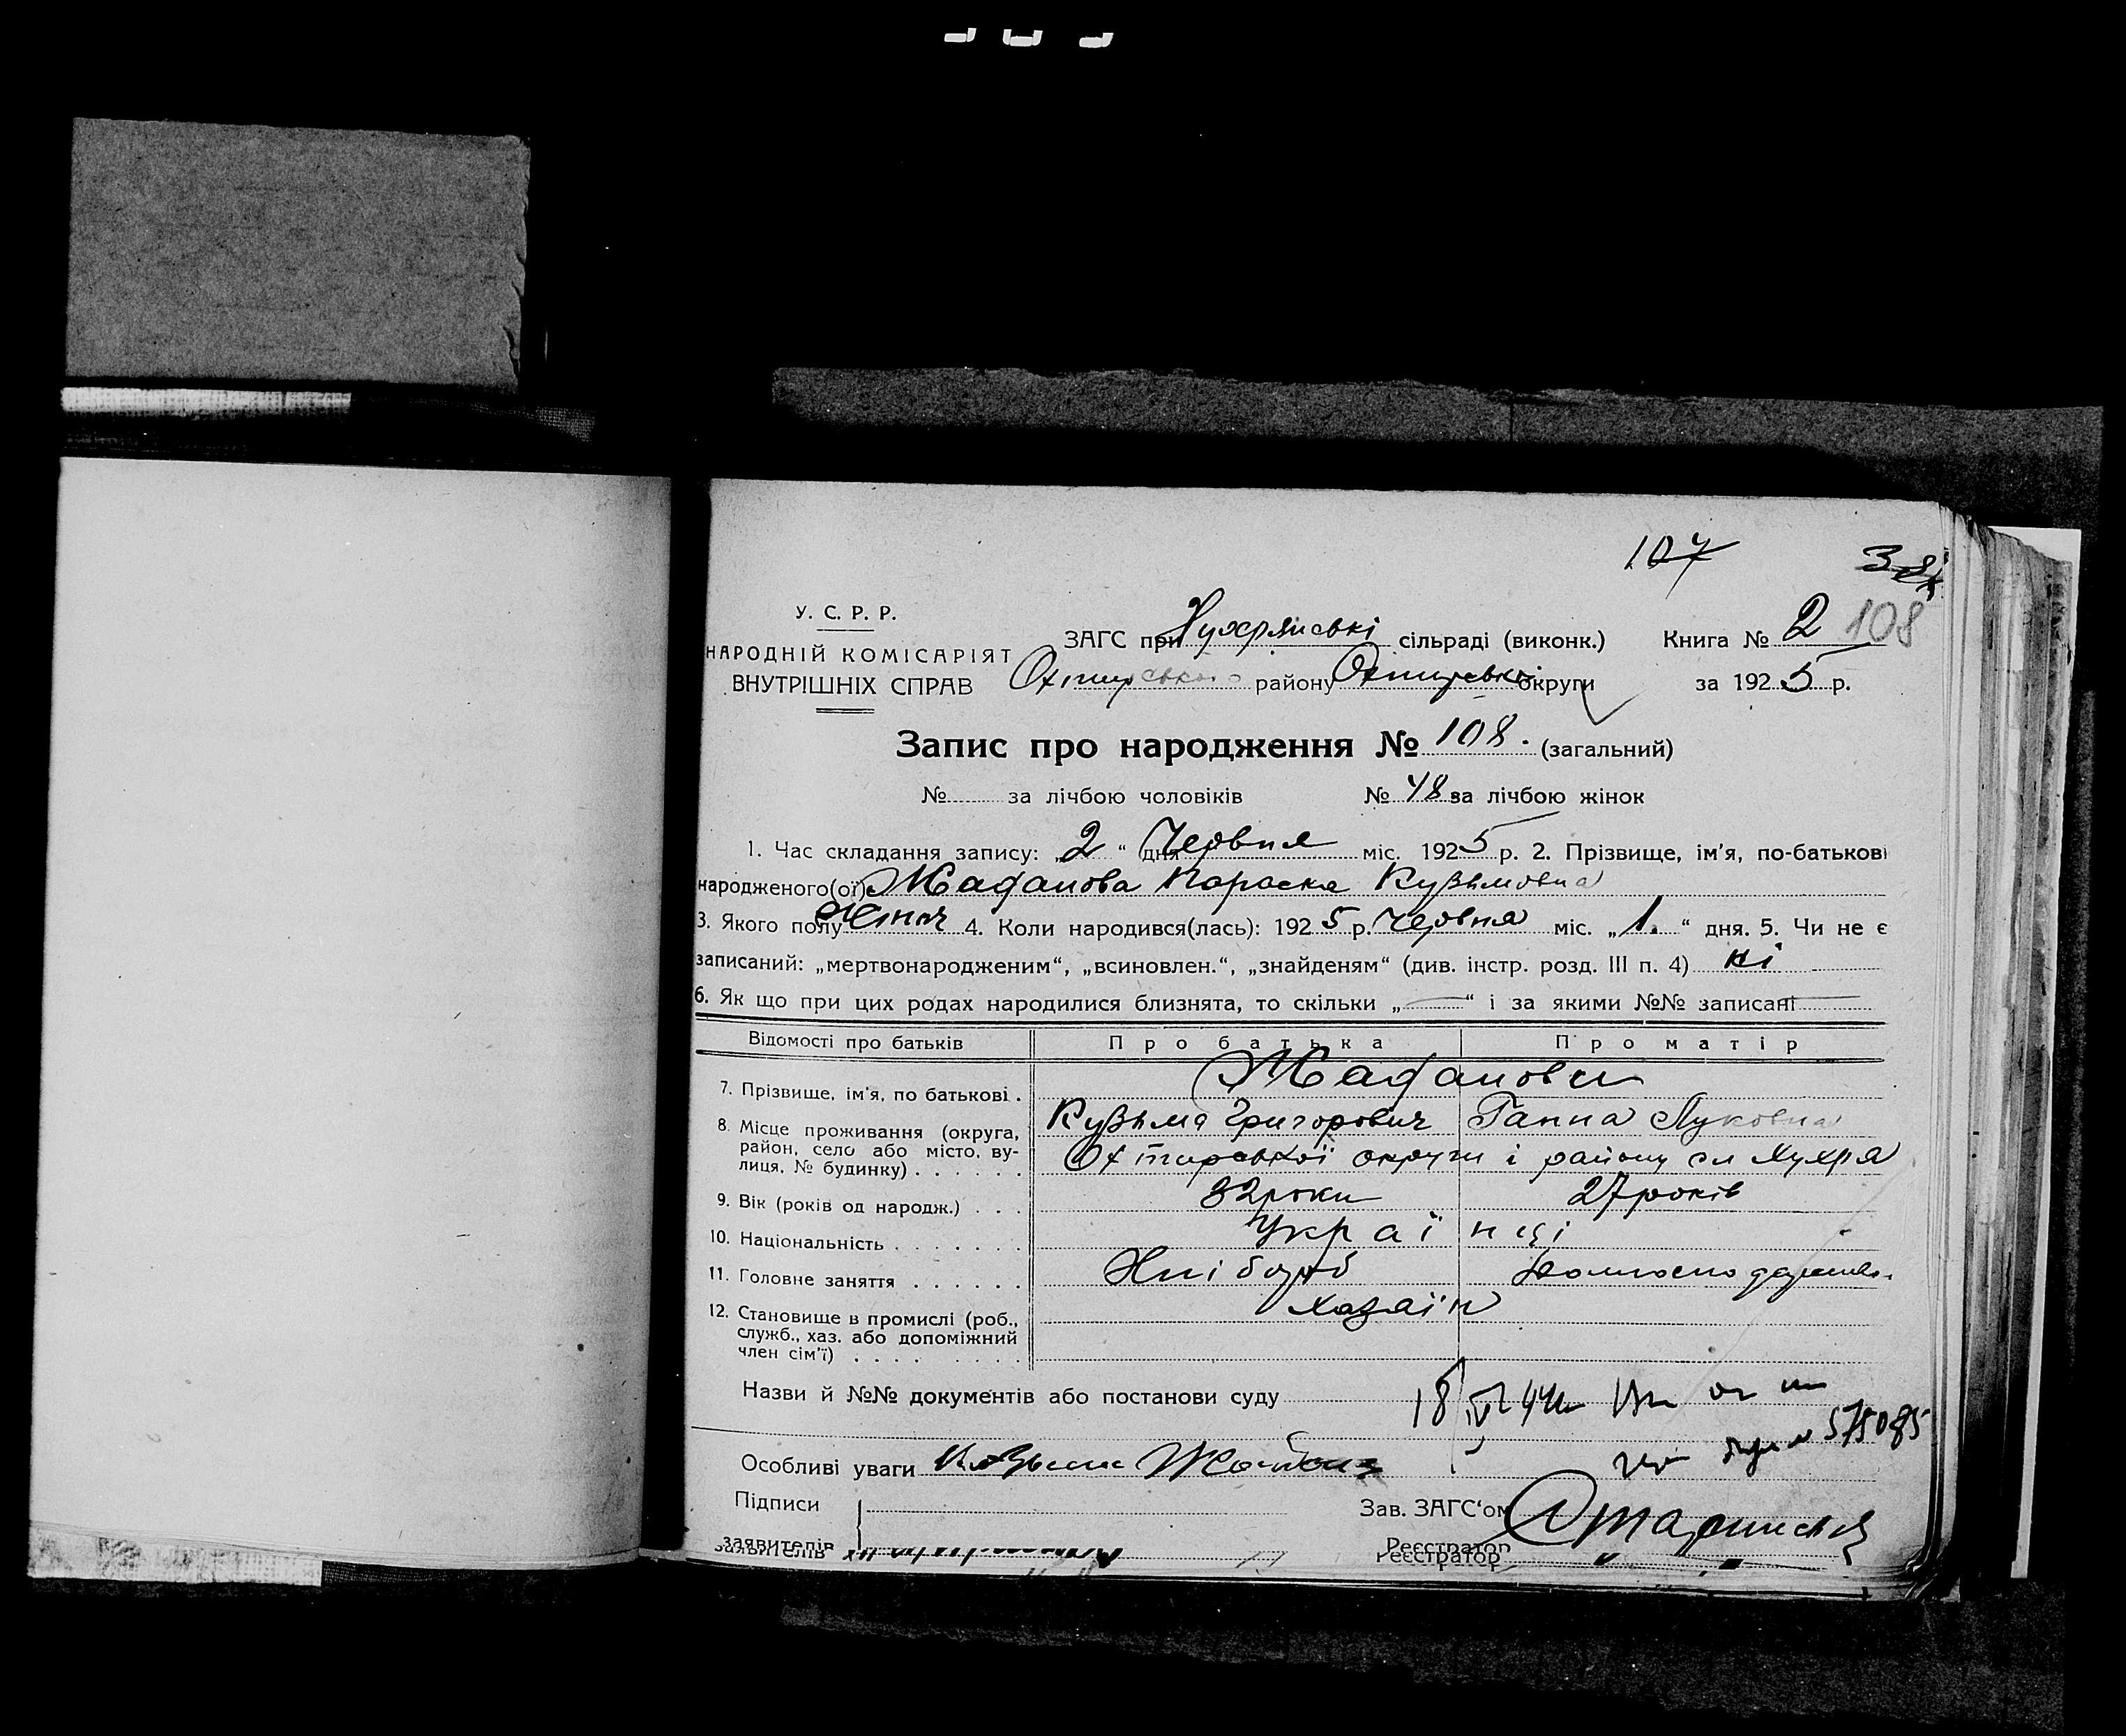 107
У. С. Р. Р.
НАРОДНІЙ КОМІСАРІЯТ
ВНУТРІШНІХ СПРАВ
ЗАГС при Хухрянські сільраді (виконк.) Книга № 2 108
Охтирського району Охтирські округи за 1925 р.
Запис про народження № 108. (загальний)
№ за лічбою чоловіків № 48 за лічбою жінок
1. Час складання запису: „2“ дня Червня міс. 1925 р. 2. Прізвище, ім'я, по-батькові
народженого(ої) Жаданова Параска Кузьмовна
3. Якого полу жіноч 4. Коли народився(лась): 1925 р. Червня міс. „1.“ дня. 5. Чи не є
записаний: „мертвонародженим“, „всиновлен.“, „знайденям“ (див. інстр. розд. III п. 4) ні
6. Як що при цих родах народилися близнята, то скільки „—“ і за якими №№ записані —
Відомості про батьків Про батька Про матір
7. Прізвище, ім'я, по батькові . Жаданови
Кузьма Григорович Ганна Луковна
8. Місце проживання (округа,
район, село або місто, ву-
лиця, № будинку) . . . . . . Охтирської округи і району сл Хухря
9. Вік (років од народж.) . . . 32 роки 27 років
10. Національність . . . . . . . Українці
11. Головне заняття . . . . . . Хлібороб
12. Становище в промислі (роб.,
служб., хаз. або допоміжний
член сім'ї) . . . . . . . . . Хазяїн
Назви й №№ документів або постанови суду 18
575085
Особливі уваги
Підписи
заявителів
Зав. ЗАГС'ом
Реєстратор
заявителів
Реєстратор " "